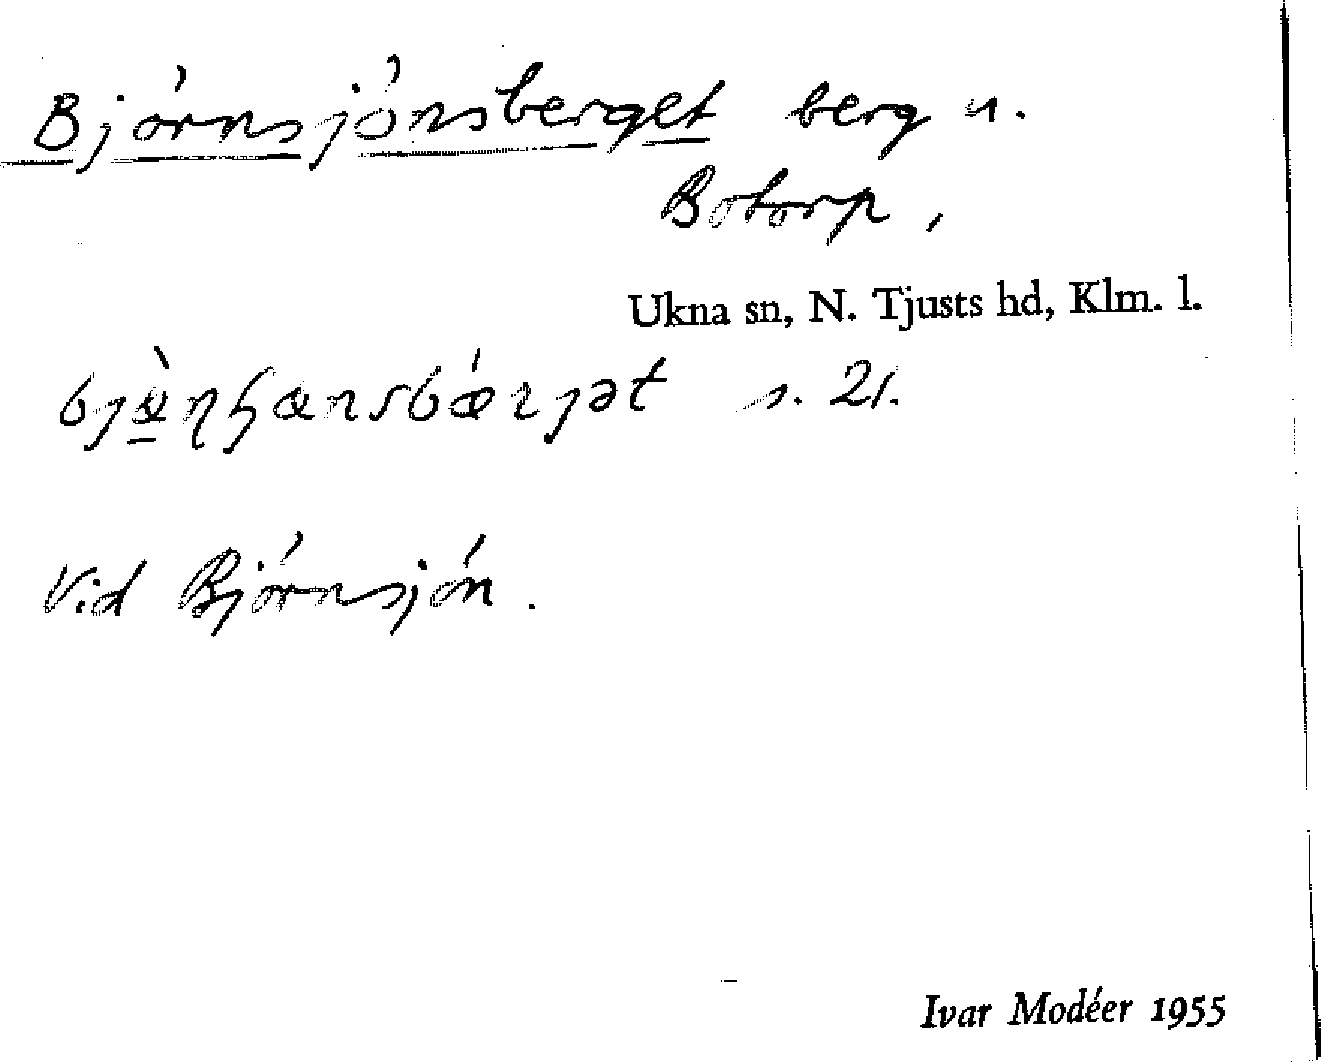 Björnsjönsberget berg n.
Botorp,
Ukna sn, N. Tjusts hd, Klm. l.
s. 21.
Vid Björnsjön.
Ivar Modéer 1955